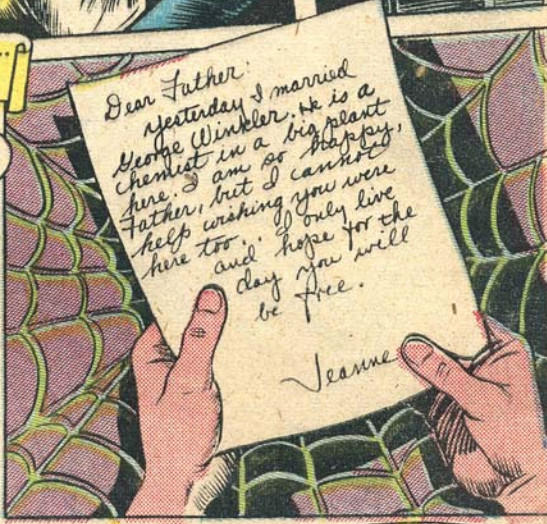 Dear Father:
Yesterday I married
George Winkler. He is a
chemist in a big plant
here. I am so happy,
Father, but I cannot
help wishing you were
here too.. I only live
and hope for the
day you will
be free.
Jeanne